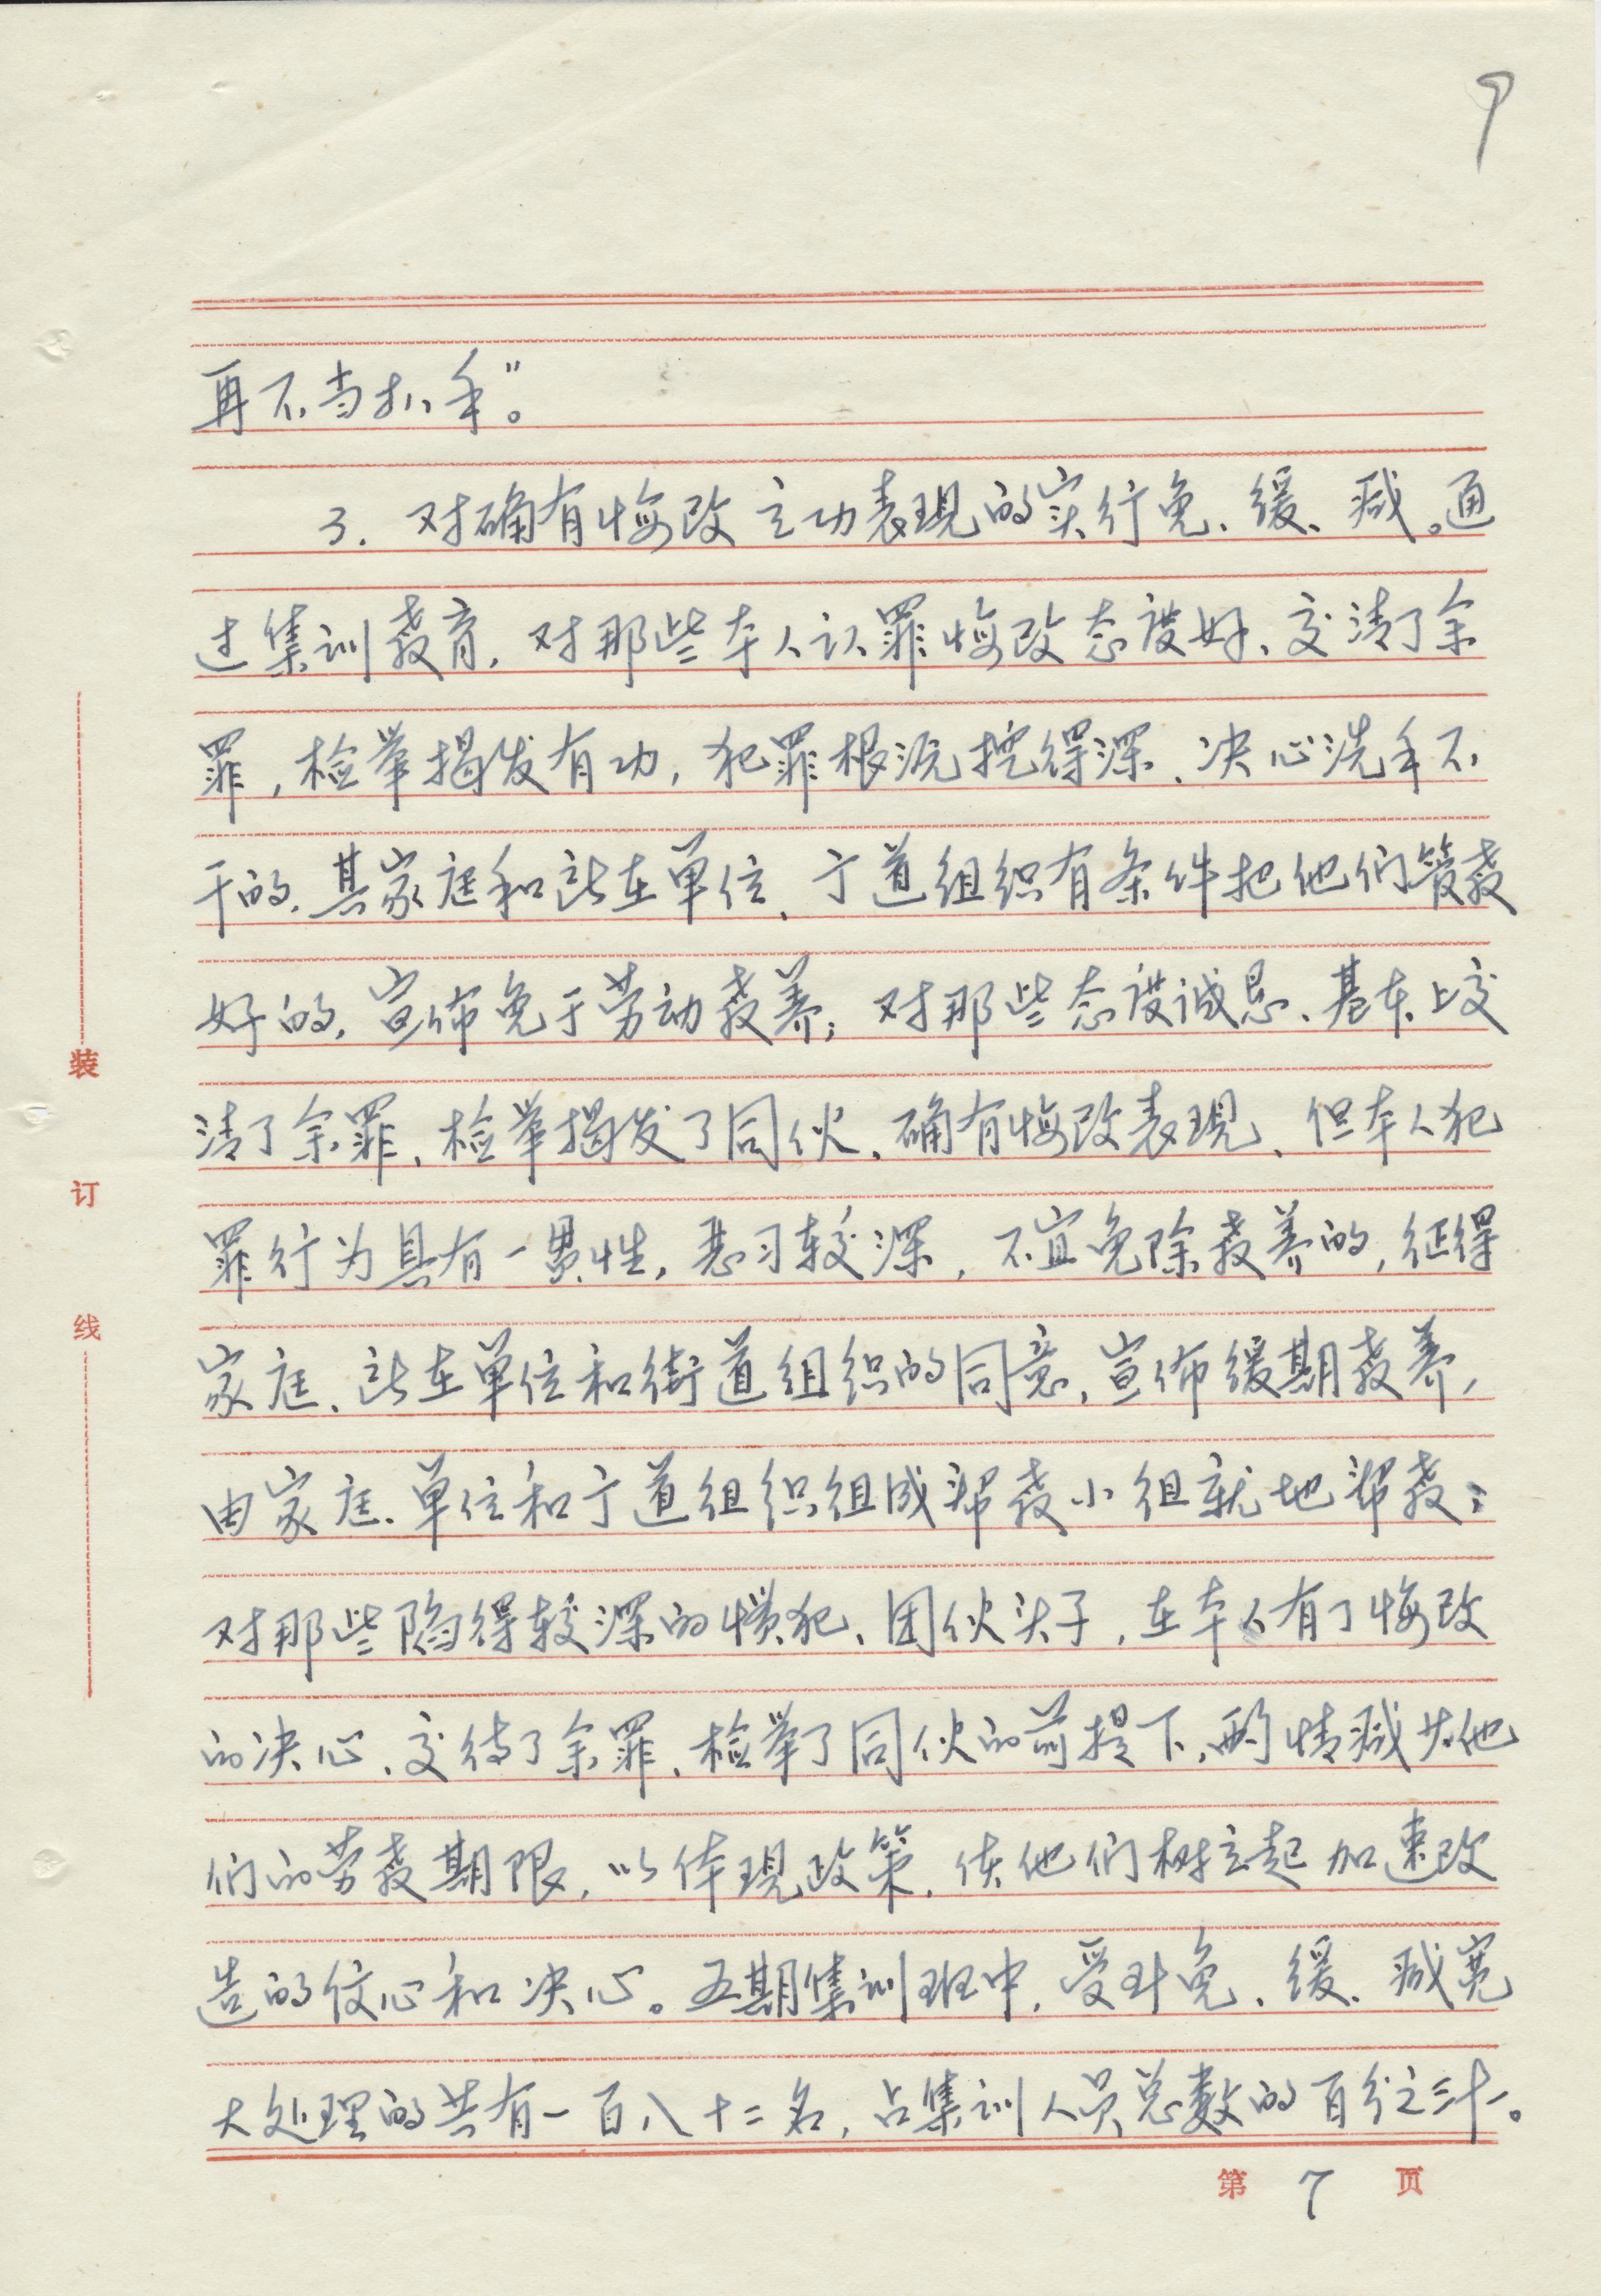 9
再不当扒手”。
3. 对确有悔改立功表现的实行免、缓、减。通
过集训教育，对那些本人认罪悔改态度好、交清了余
罪，检举揭发有功，犯罪根源挖得深、决心洗手不
干的，其家庭和所在单位、亍道组织有条件把他们管教
好的，宣佈免于劳动教养；对那些态度诚恳、基本上交
清了余罪、检举揭发了同伙、确有悔改表现、但本人犯
罪行为具有一贯性，恶习较深，不宜免除教养的，征得
家庭、所在单位和街道组织的同意，宣佈缓期教养，
由家庭、单位和亍道组织组成帮教小组就地帮教；
对那些陷得较深的惯犯、团伙头子，在本人有了悔改
的决心、交待了余罪、检举了同伙的前提下，酌情减少他
们的劳教期限，以体现政策，使他们树立起加速改
造的信心和决心。五期集训班中，受到免、缓、减宽
大处理的共有一百八十二名，占集训人员总数的百分之三十一。
装
订
线
第 7 页